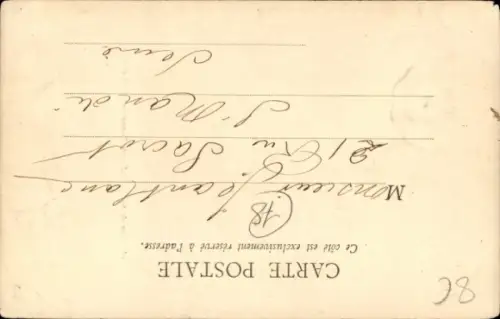 CARTE POSTALE
Ce côté est exclusivement réservé à l'adresse.
18
Monsieur
21 Rue Sacrot
St Mandé
Seine